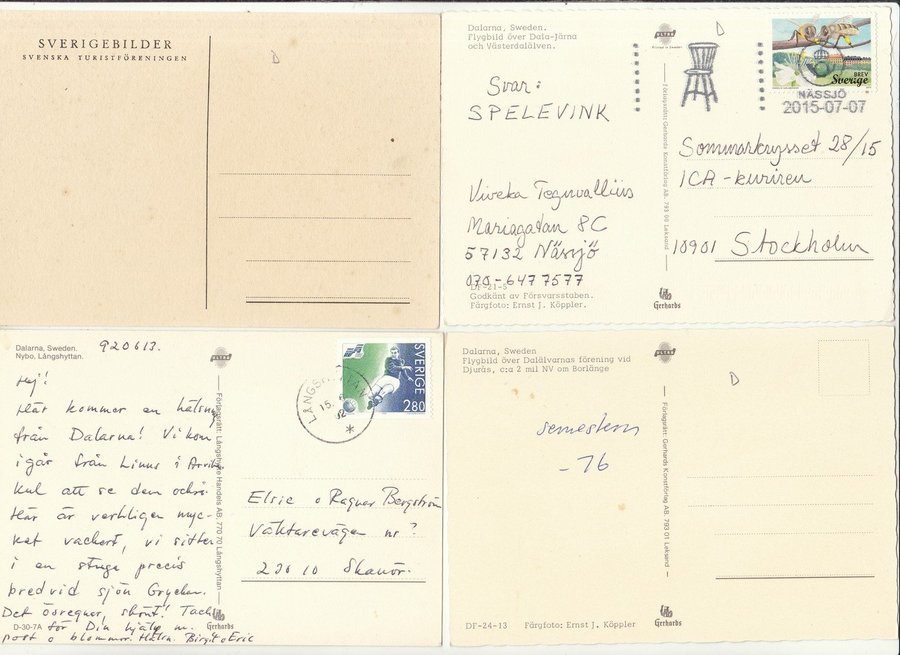 SVERIGEBILDER
SVENSKA TURISTFÖRENINGEN
D
Dalarna, Sweden.
Flygbild över Dala-Järna
och Västerdalälven.
ULTRA
Printed in Sweden
BREV
Sverige
NÄSSJÖ
2015-07-07
Svar:
SPELEVINK
Viveka Tegnvallius
Mariagatan 8C
57132 Nässjö
070-6477577
DF-21-5
Godkänt av Försvarsstaben.
Färgfoto: Ernst J. Köppler.
Förlagsrätt: Gerhards Konstförlag AB. 793 00 Leksand
Sommarkrysset 28/15
ICA-kuriren
10901 Stockholm
Gerhards
Dalarna, Sweden.
Nybo, Långshyttan.
920613.
ULTRA
SVERIGE
280
LÅNGSHYTTAN
15. 6
Hej!
Här kommer en hälsn
från Dalarna! Vi kom
igår från Linus i Arvika
Kul att se dem också.
Här är verkligen myc-
ket vackert, vi sitter
i en stuga precis
bredvid sjön Grycken.
Det ösregnar, skönt! Tack
för Din hjälp m.
post o blommor. Hälsn. Birgit o Eric
D-30-7A
Förlagsrätt: Långshytte Handels AB. 770 70 Långshyttan
Elsie o Ragnar Bergström
Väktarevägen nr ?
230 10 Skanör.
Gerhards
Dalarna, Sweden
Flygbild över Dalälvarnas förening vid
Djurås, c:a 2 mil NV om Borlänge
ULTRA
D
semestern
-76
Förlagsrätt: Gerhards Konstförlag AB, 793 01 Leksand
DF-24-13 Färgfoto: Ernst J. Köppler
Gerhards